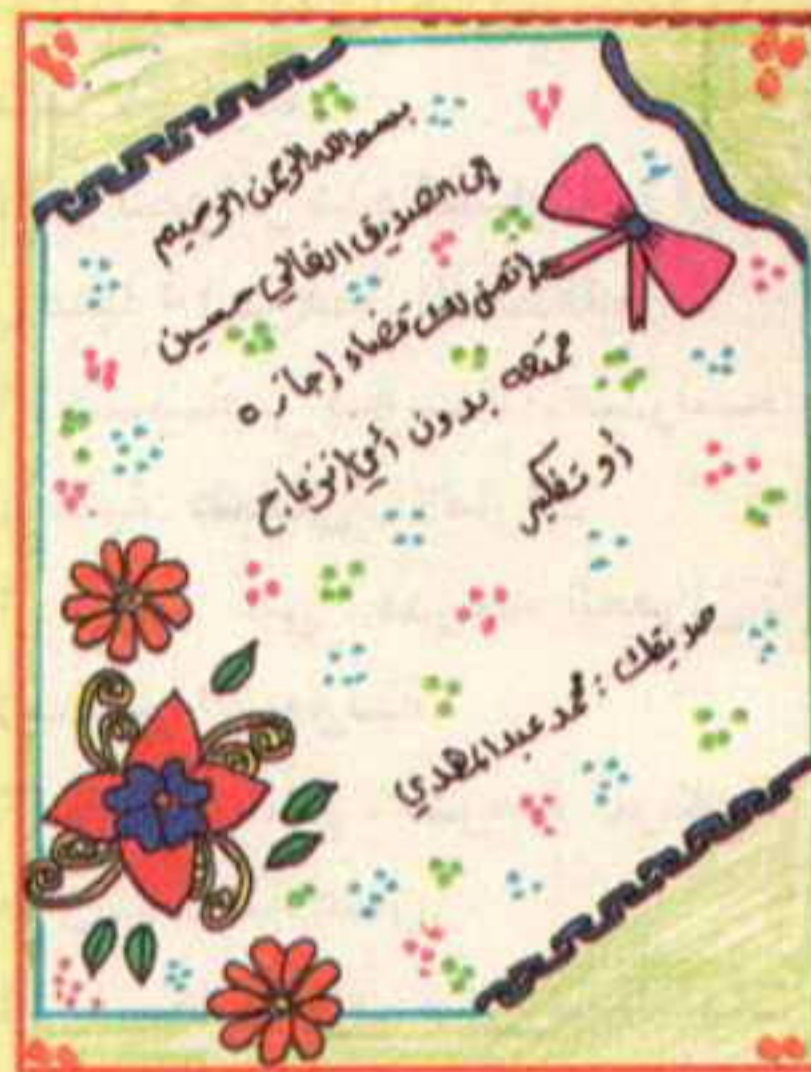 بسم الله الرحمن الرحيم
إلى الصديق الغالي حسين
اتمنى لك قضاء إجازه
ممتعه بدون أي إنزعاج
أو تفكير
صديقك : محمد عبد المهدي